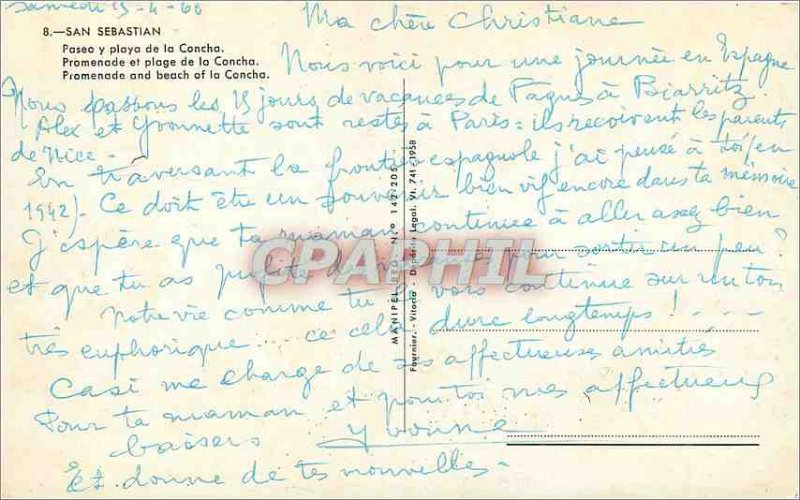 Samedi 15-4-60
Ma chère Christiane
8.—SAN SEBASTIAN
Paseo y playa de la Concha.
Promenade et plage de la Concha.
Promenade and beach of la Concha.
Nous voici pour une journée en Espagne
Nous passons les 15 jours de vacances de Pâques à Biarritz.
Alex et Yvonnette sont restés à Paris = ils reçoivent les parents
de Nice -
En traversant la frontière espagnole j'ai pensé à toi (en
1942) - Ce doit être un souvenir bien vif encore dans ta mémoire
J'espère que ta maman continue à aller assez bien
et que tu as profité de vacances pour sortir un peu ?
Notre vie comme tu le vois continue sur un ton
très euphorique ... ce cela dure longtemps ! ....
Casi me charge de ses affectueuses amitiés
Pour ta maman et pour toi mes affectueux
baisers Yvonne
Et donne de tes nouvelles -
MANIPEL REG. N.º 147.205
Fournier. - Vitoria - Depósito Legal. VI. 741 - 1958
CPAPHIL